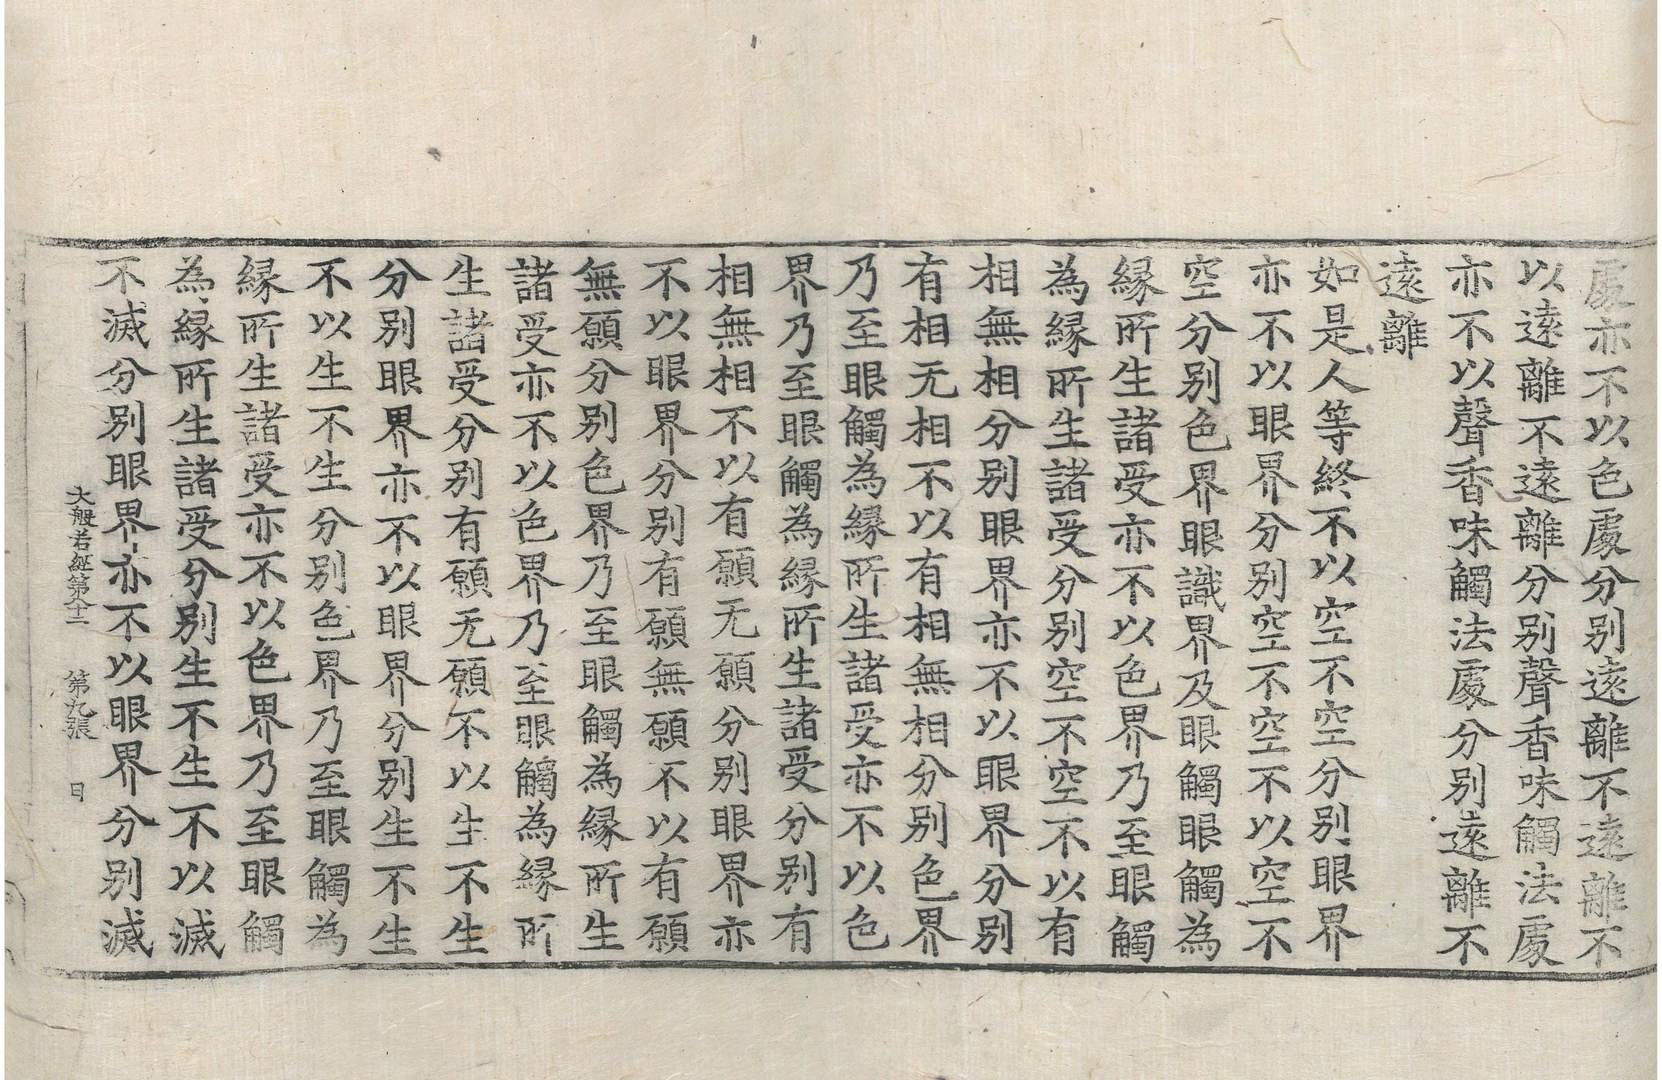 處亦不以色處分别遠離不遠離不
以遠離不遠離分别聲香味觸法處
亦不以聲香味觸法處分别遠離不
遠離
如是人等終不以空不空分别眼界
亦不以眼界分别空不空不以空不
空分别色界眼識界及眼觸眼觸為
縁所生諸受亦不以色界乃至眼觸
為縁所生諸受分别空不空不以有
相無相分别眼界亦不以眼界分别
有相无相不以有相無相分别色界
乃至眼觸為縁所生諸受亦不以色
界乃至眼觸為縁所生諸受分别有
相無相不以有願无願分别眼界亦
不以眼界分别有願無願不以有願
無願分别色界乃至眼觸為縁所生
諸受亦不以色界乃至眼觸為縁所
生諸受分别有願无願不以生不生
分别眼界亦不以眼界分别生不生
不以生不生分别色界乃至眼觸為
縁所生諸受亦不以色界乃至眼觸
為縁所生諸受分别生不生不以滅
不滅分别眼界亦不以眼界分别滅
大般若經第十二 第九張 日